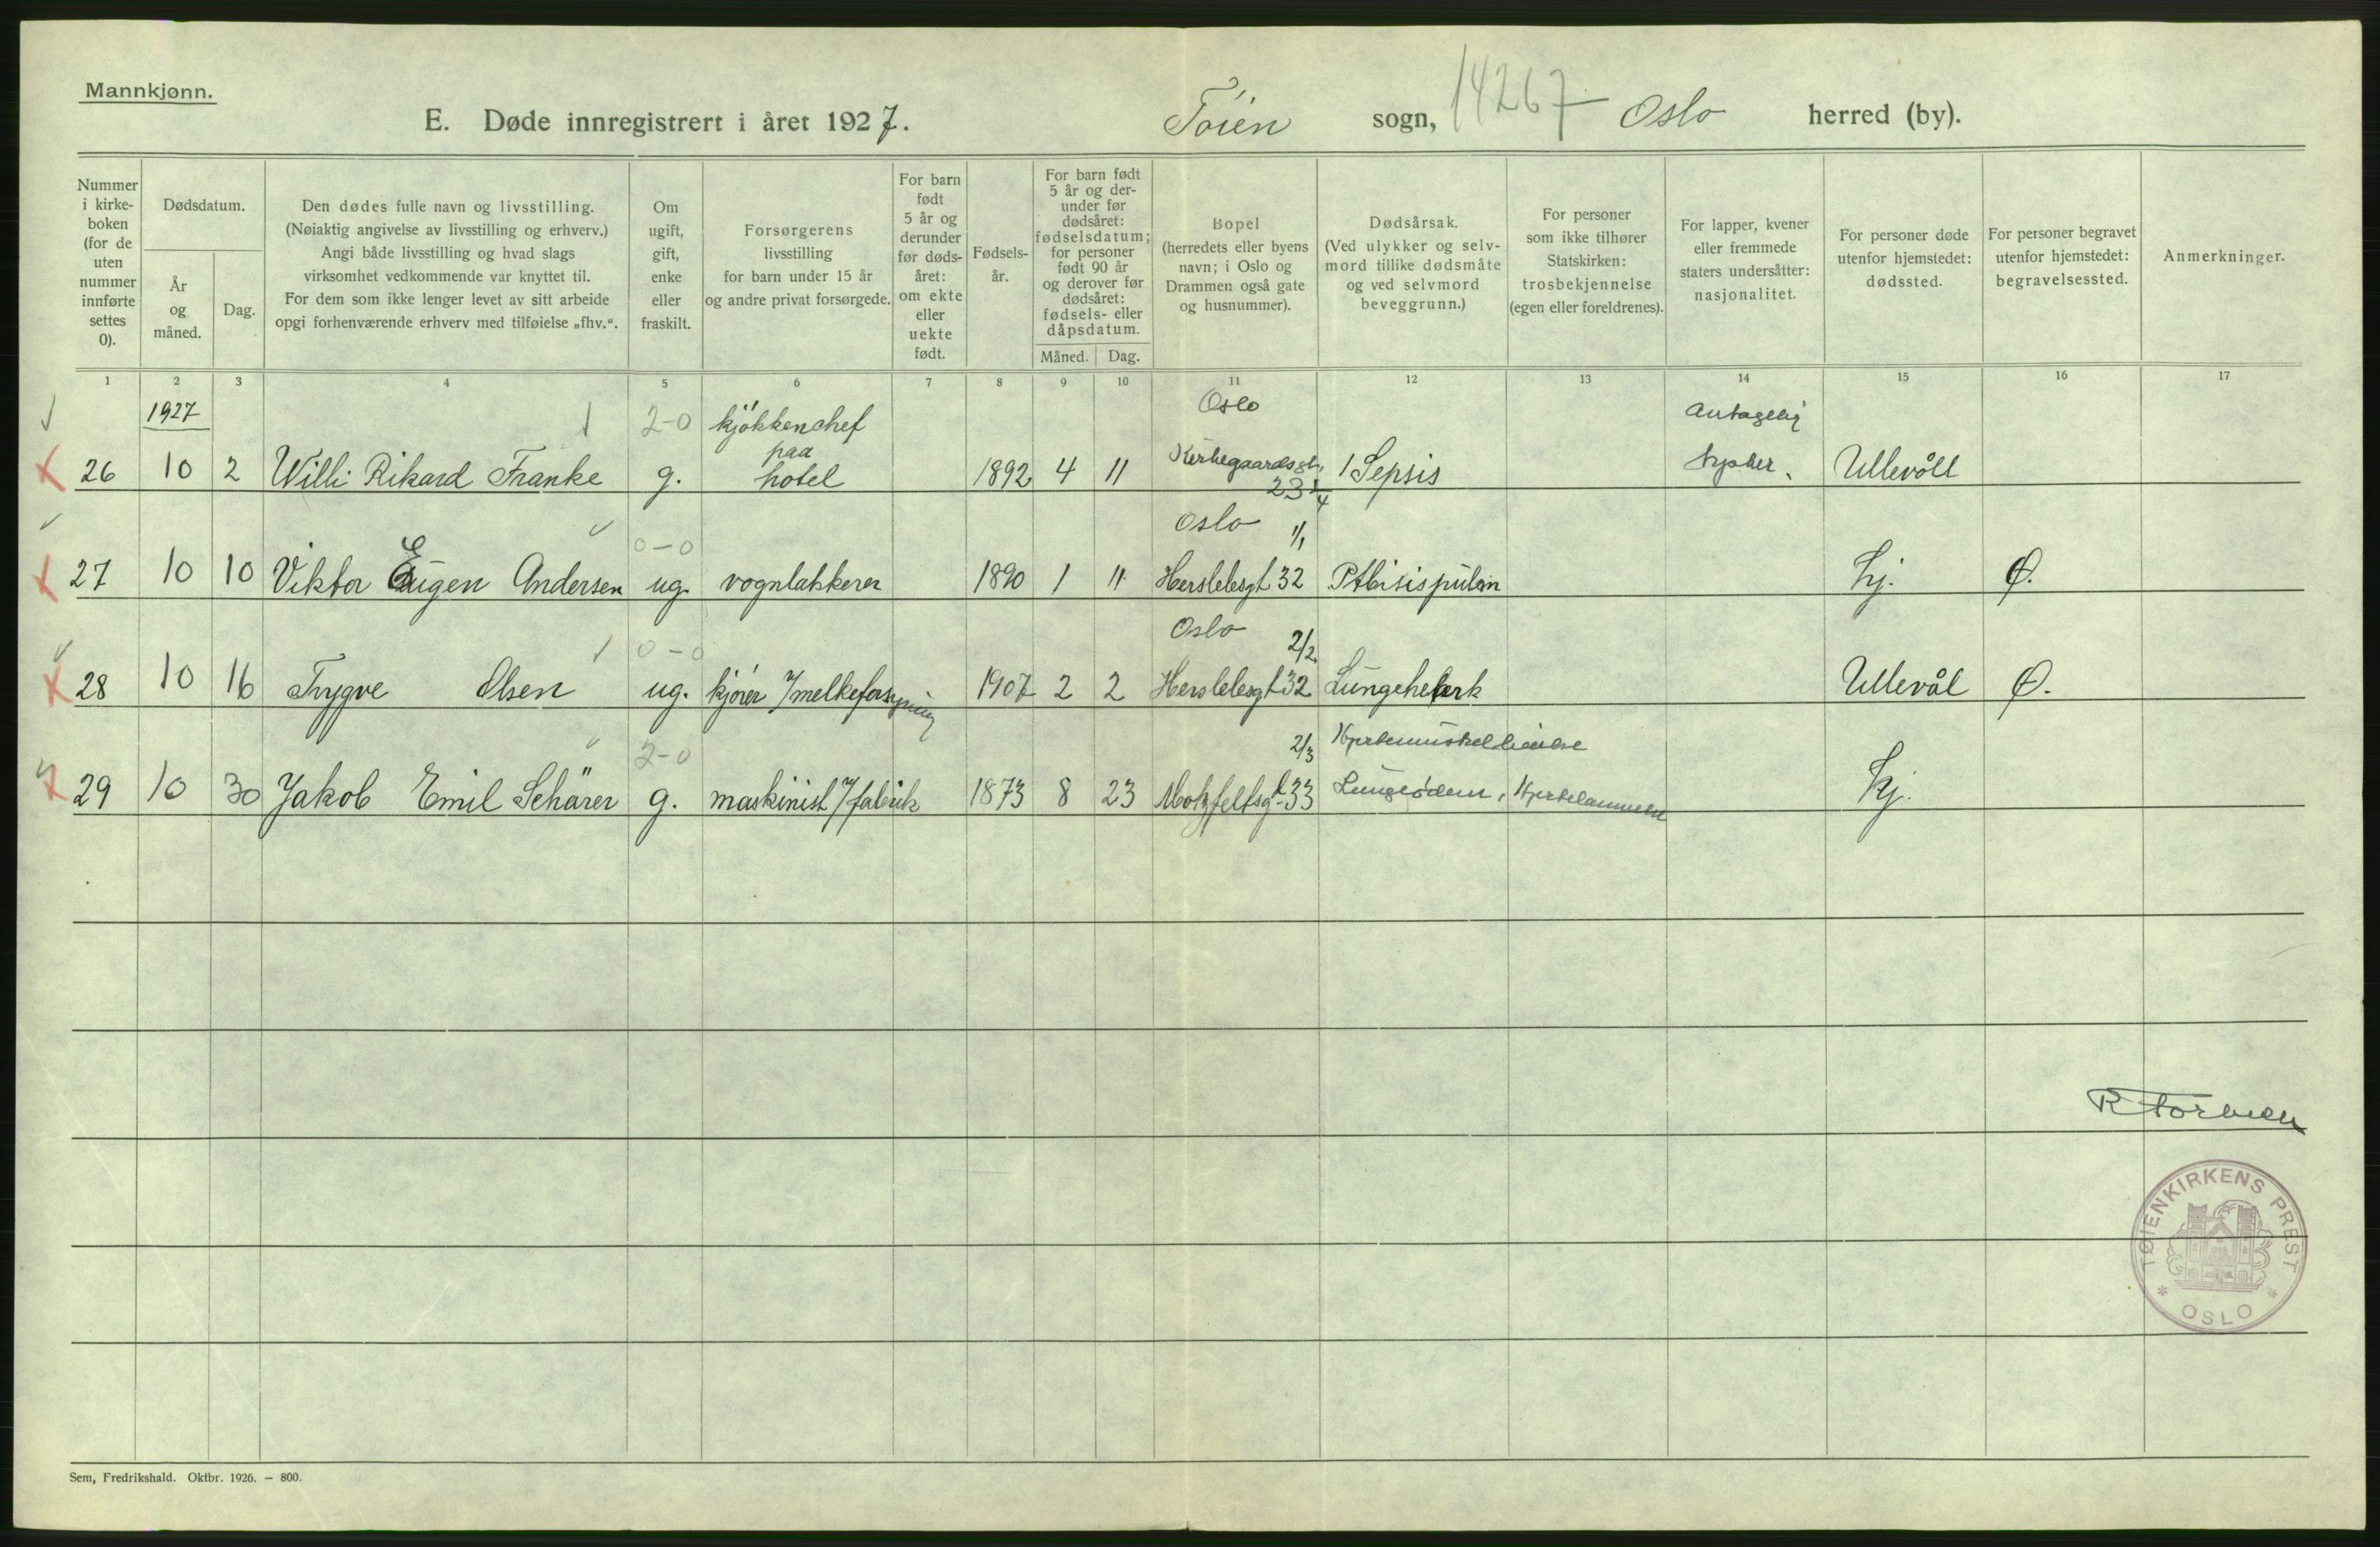 Mannkjønn.
E. Døde innregistrert i året 1927. Töien sogn, 14267 Oslo herred (by).
Nummer i kirke- boken (for de uten nummer innførte settes 0).
Dødsdatum.
År og måned.
Dag.
Den dødes fulle navn og livsstilling.
(Nøiaktig angivelse av livsstilling og erhverv.)
Angi både livsstilling og hvad slags
virksomhet vedkommende var knyttet til.
For dem som ikke lenger levet av sitt arbeide
opgi forhenværende erhverv med tilføielse „fhv.“.
Om ugift, gift, enke eller fraskilt.
Forsørgerens
livsstilling
for barn under 15 år
og andre privat forsørgede.
For barn født 5 år og derunder før døds- året: om ekte eller uekte født.
Fødsels- år.
For barn født 5 år og der- under før dødsåret: fødselsdatum; for personer født 90 år og derover før dødsåret: fødsels- eller dåpsdatum.
Måned. Dag.
Bopel
(herredets eller byens
navn; i Oslo og
Drammen også gate
og husnummer).
Dødsårsak.
(Ved ulykker og selv-
mord tillike dødsmåte
og ved selvmord
beveggrunn.)
For personer
som ikke tilhører
Statskirken:
trosbekjennelse
(egen eller foreldrenes).
For lapper, kvener
eller fremmede
staters undersåtter:
nasjonalitet.
For personer døde
utenfor hjemstedet:
dødssted.
For personer begravet
utenfor hjemstedet:
begravelsessted.
Anmerkninger.
1 2 3 4 5 6 7 8 9 10 11 12 13 14 15 16 17
1927 2-0 kjökkenchef Oslo Antagelig
paa
26 10 2 Willi Rikard Franke g. hotel 1892 4 11 Kirkegaardsgt. 23 1/4 Sepsis tysker. Ullevåll
0-0 Oslo 1/1
27 10 10 Viktor Eugen Andersen ug. vognlakkerer 1890 1 11 Herslebsgt 32 Ptbisis pulm Hj. Ø.
0-0 Oslo 2/2
28 10 16 Trygve Olsen ug. kjörer i/melkeforsyning 1907 2 2 Herslebsgt 32 Lungeheberk Ullevål Ø.
2-0 2/3 Hjertemuskellidelse
29 10 30 Jakob Emil Schärer g. maskinist i/fabrik 1873 8 23 Motzfeltsgt 33 Lungeödem, Hjertelammelse Hj.
TØIENKIRKENS PREST
* OSLO *
Sem, Fredrikshald. Oktbr. 1926. — 800.